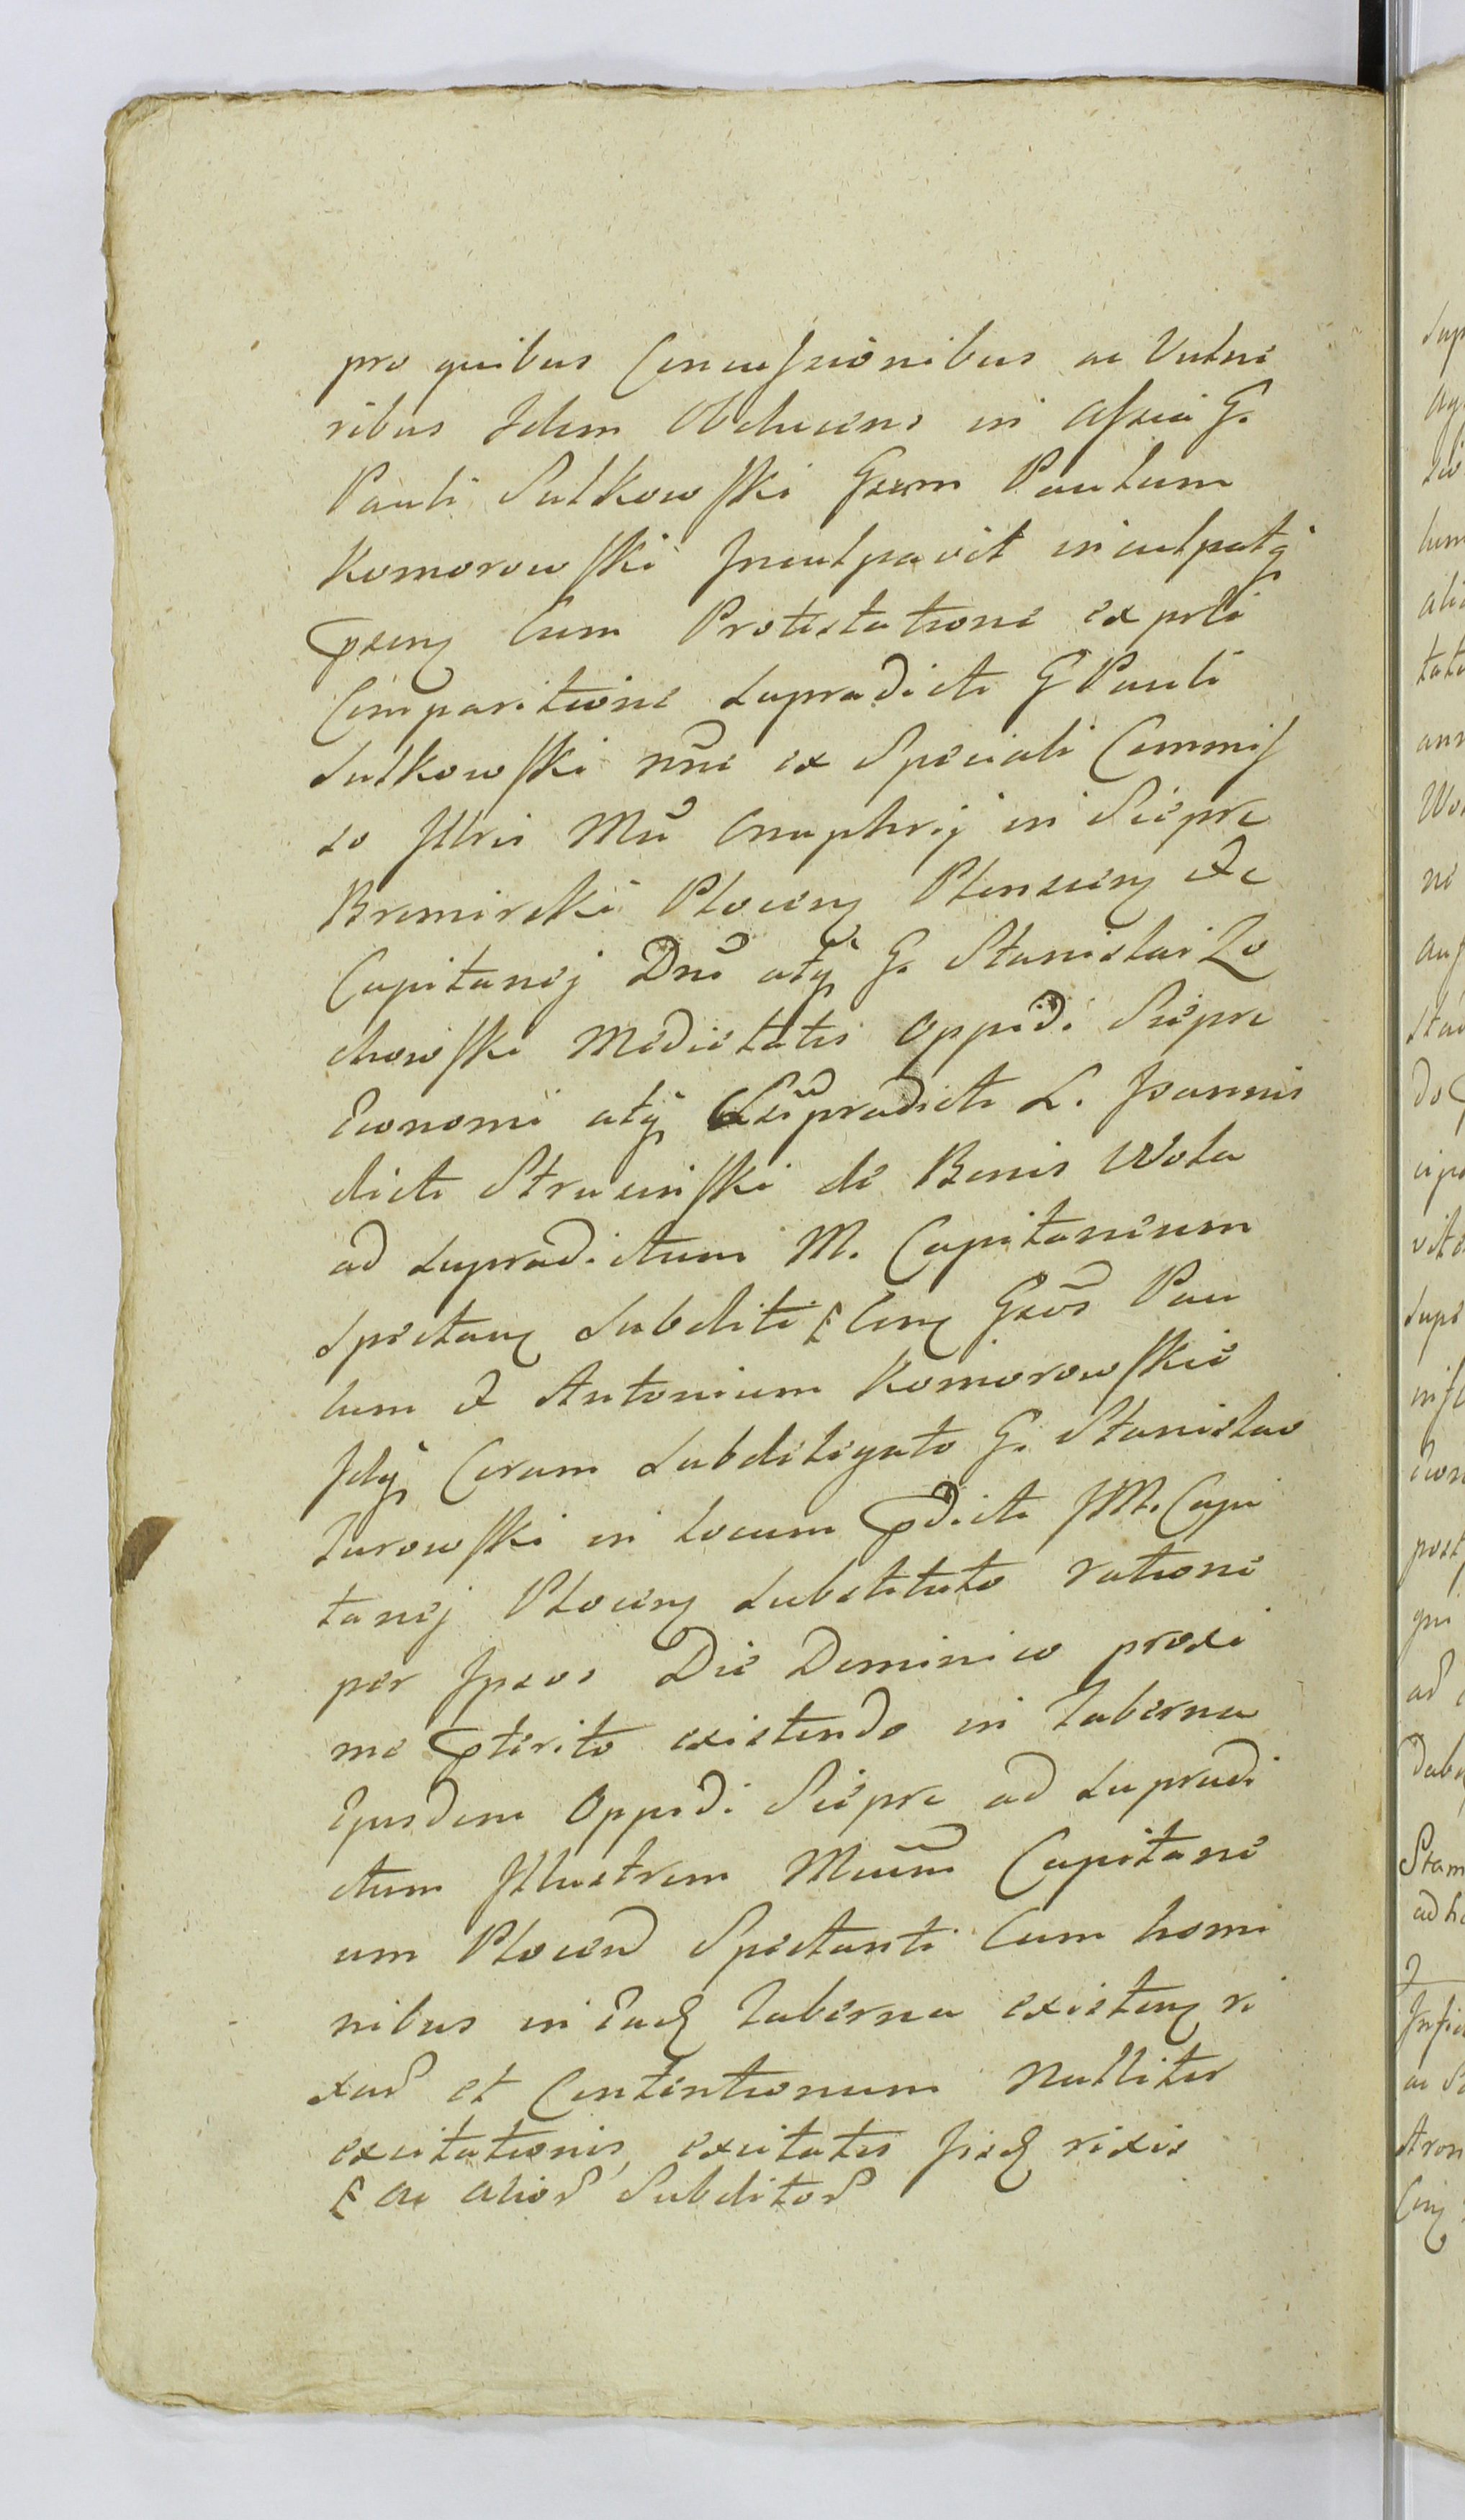 pro quibus Concussionibus ac Vulne
ribus Idem Obducens in assia G.
Pauli Sulkowski Gsum Paulum
Komorowski Inculpavit inculpatq
psenz Cum Protestatione ex psti
Comparitione supradicti G Pauli
Sulkowski nõie ex Speciali Commis
so Illris Mũ Onuphrij in Sierpc
Bromirski Plocenz Plenscienz &c
Capitanej Dnĩ atq G. Stanislai Zo
chowski Medietatis Oppidi Sierpc
Economi atq Supradicti L. Joannis
dicti Strusinski de Bonis Wola
ad supradictum M. Capitaneum
Spectanz Subditi Conz Gsõs Pau
lum & Antonium Komorowskie
Idq Coram Subdelegato G. Stanislao
Turowski in Locum pdicti JM. Capi
tanej Plocenz Substituto ratione
per Ipsos Die Dominico proxi
me pterito existendo in Taberna
Ejusdem Oppidi Sierpc ad supradi
ctum Illustrem Mucũm Capitane
um Plocen Spectanti Cum homi
nibus in Eadz Taberna existenz ri
xar et Contentionum Nulliter
excitationis, excitatis Iisdz rixis
ac alior Subditor